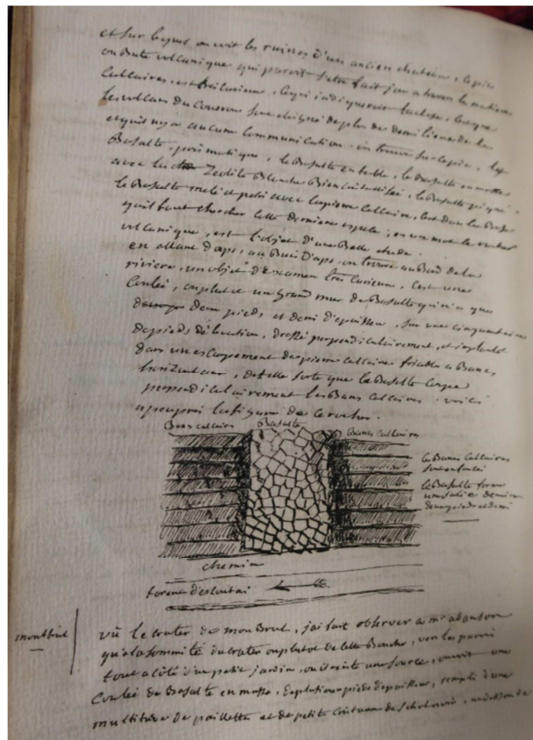 et sur lequel on voit les ruines d'un ancien chateau, le pic
ou bute vollcanique qui paroit s'etre fait jour a travers les matieres
Calcaires, est tres curieux, ce qui indiqueroit
le vollcan du est eloigné de plus de demi lieue de la
et qu'il n'y a aucune Communication. on trouve sur ce pic, le
Basalte prismatique, le Basalte en table, le Basalte en masse
avec la Zeolite Blanche Bien Cristallisée, le Basalte
le Basalte melé et petri avec la pierre Calcaire, c'est dans la Base
qu'il faut chercher cette derniere espece, en un mot le rocher
vollcanique, est l'objet d'une Belle etude.
en allant d'aps, au Buis D'aps, on trouve au Bord de la
riviere, un objet d'Examen tres Curieux, C'est une
Coulée, ou plutot un grand mur de Basalte qui n'a que
deux pieds, et demi d'epaisseur, sur une cinquantaine
de pieds d'élevation, dressé perpendiculairement, et implanté
dans un escarpement de pierre Calcaire friable a Bancs
horizontaux, de telle sorte que le Basalte Coupe
perpendiculairement les Bancs Calcaires. voici
a peu pres la figure de ce rocher.
Bancs calcaires Basalte Bancs Calcaires
les Bancs Calcaires
sont
le Basalte forme
de deux pieds et demi
chemin
torrent
montbrul
vû le crater de monBrul, j'ai fait observer a mr
qu'a la sommité du crater ou plutot de cette Bouche, vers la paroi
tout a coté d'un petit jardin, ou il existe une source, on voit une
Coulée de Basalte en masse, de plusieurs pieds d'epaisseur, remplie d'une
multitude de paillettes et de petits Cristaux de Schorl noir,